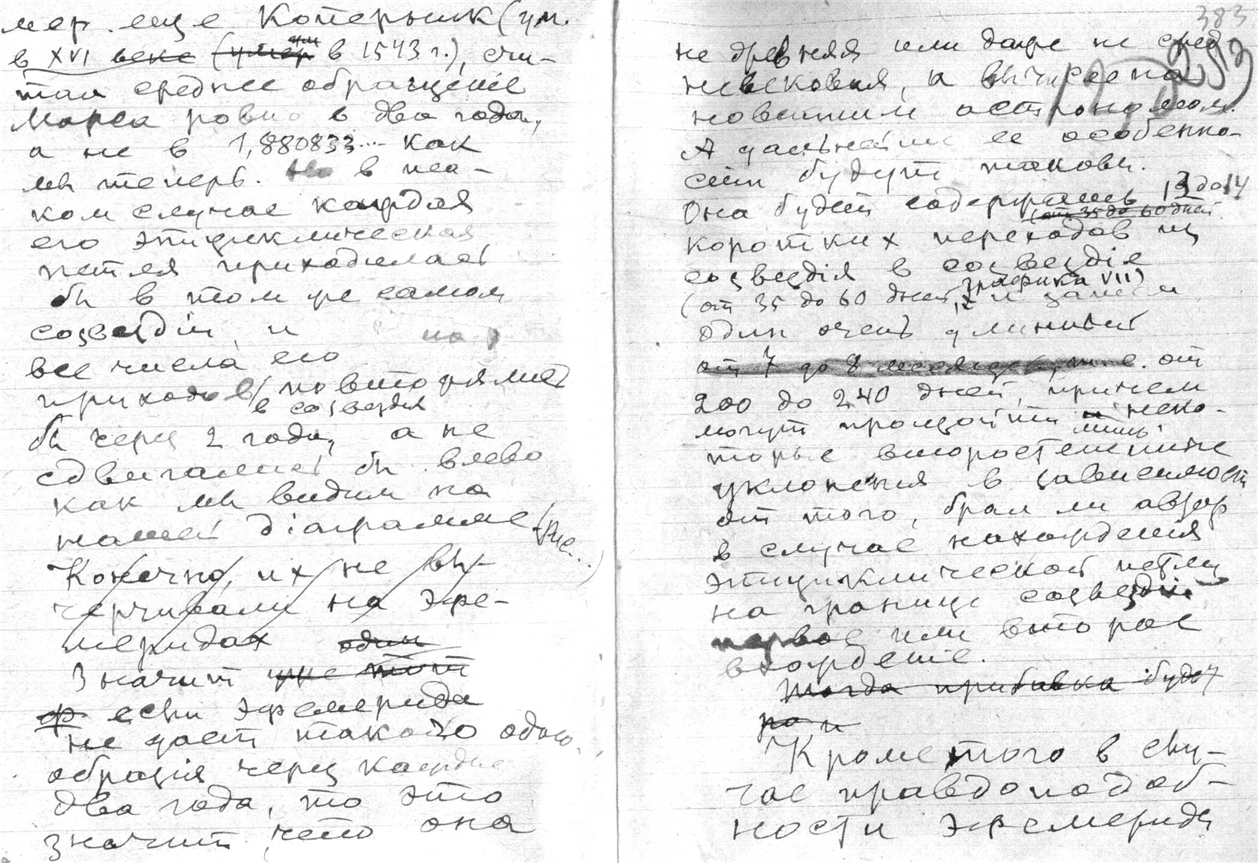 мер еще Коперник (ум.
в XVI веке (умер ум в 1543 г.), счи-
тал среднее обращение
Марса ровно в два года,
а не в 1,880833... как
мы теперь. Но в та-
ком случае каждая
его эпициклическая
петля приходилась
бы в том же самом
созвездіи и
все числа его
приходов повторялись
в созвездия
бы через 2 года, а не
сдвигались бы влево
как мы видим на
нашей діаграмме (рис...)
Конечно, их не вы-
черчивали на эфе-
меридах один
Значит уже тот
ф если эфемерида
не дает такого одно-
образія через каждые
два года, то это
значит, что она
383
253
не древняя или даже не сред-
невековая, а вычислена
новейшим астрономом.
А дальнейшие ее особенно-
сти будут таковы.
Она будет содержать 13 до 14
(от 35 до 60 дней
коротких переходов из
созвездія в созвездіе
графика VII)
(от 35 до 60 дней, и затем
один очень длинный
от 7 до 8 месяцев, т.е. от
200 до 240 дней, причем
могут произойти лишь неко-
торые второстепенные
уклонения в зависимости
от того, брал ли автор
в случае нахождения
эпициклической петли
на границе созвездій
первое или второе
вхождение.
Тогда прибавка будет
по и
Кроме того в слу-
чае правдоподоб-
ности эфемериды